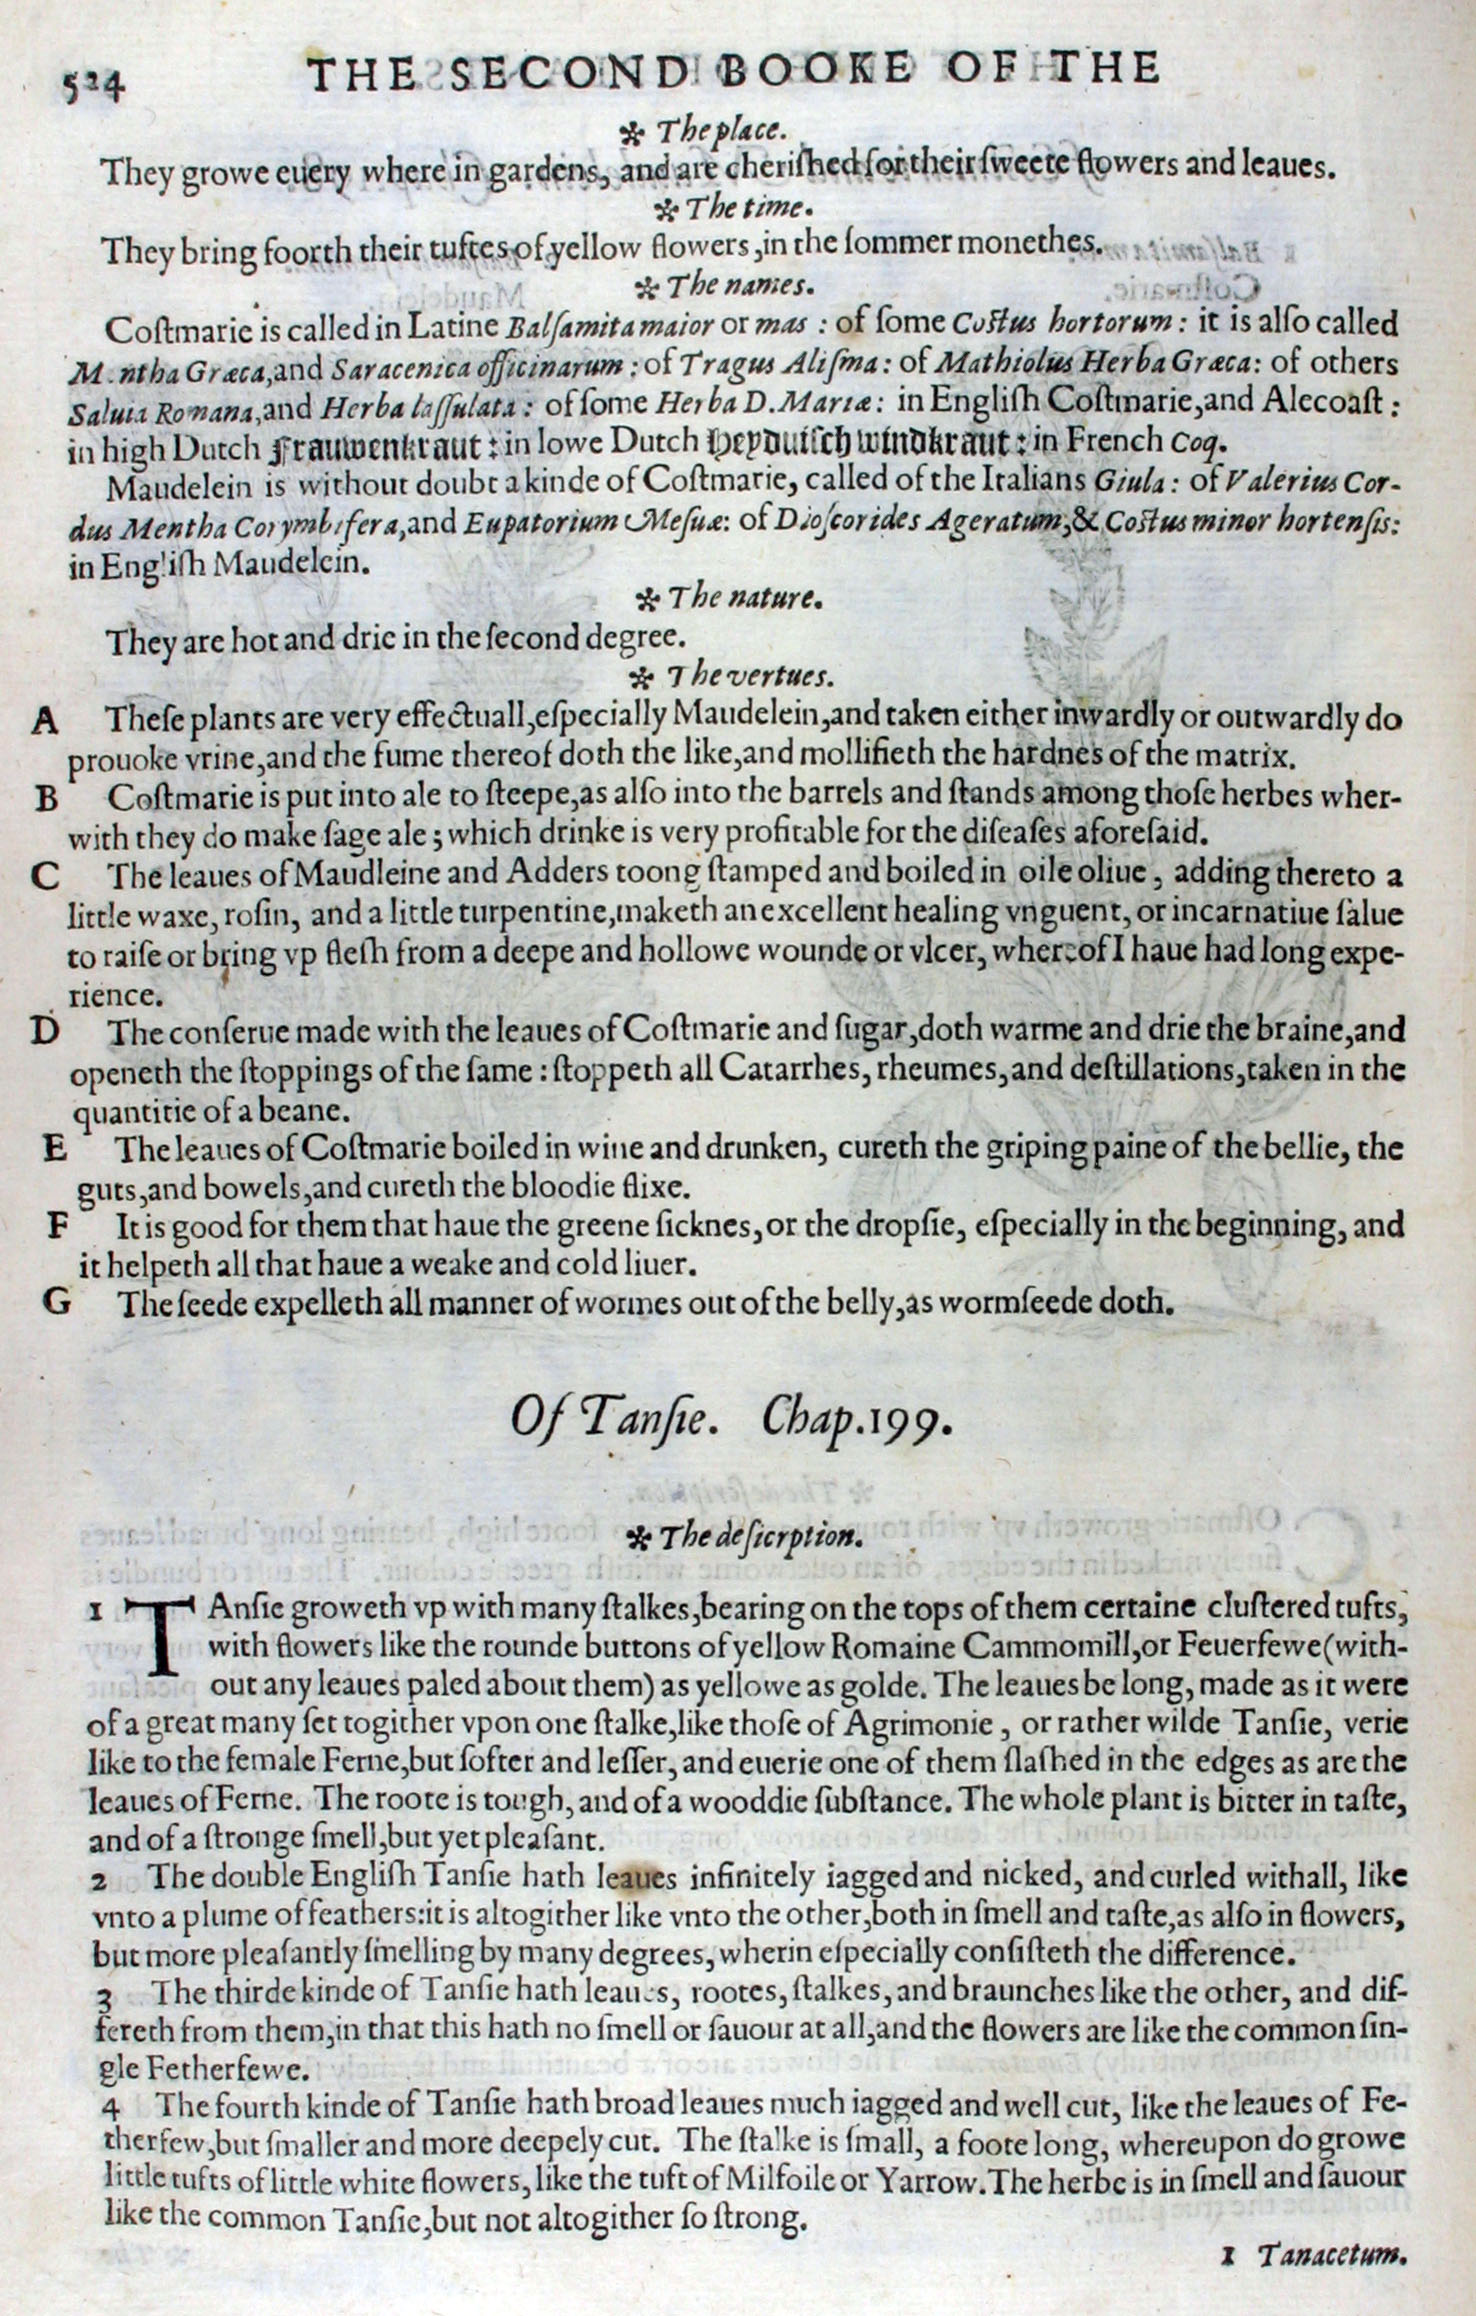 524 THE SECOND BOOKE OF THE
✲ The place.
They growe euery where in gardens, and are cheriſhed for their ſweete flowers and leaues.
✲ The time.
They bring foorth their tuftes of yellow flowers, in the ſommer monethes.
✲ The names.
Coſtmarie is called in Latine Balſamita maior or mas : of ſome Coſtus hortorum : it is alſo called
Mentha Græca, and Saracenica officinarum : of Tragus Aliſma : of Mathiolus Herba Græca : of others
Saluia Romana, and Herba laſſulata : of ſome Herba D. Mariæ : in Engliſh Coſtmarie, and Alecoaſt :
in high Dutch Frauwenkraut : in lowe Dutch Heyduiſch windkraut : in French Coq.
Maudelein is without doubt a kinde of Coſtmarie, called of the Italians Giula : of Valerius Cor-
dus Mentha Corymbifera, and Eupatorium Meſuæ : of Dioſcorides Ageratum, & Coſtus minor hortenſis :
in Engliſh Maudelein.
✲ The nature.
They are hot and drie in the ſecond degree.
✲ The vertues.
A Theſe plants are very effectuall, eſpecially Maudelein, and taken either inwardly or outwardly do
prouoke vrine, and the fume thereof doth the like, and mollifieth the hardnes of the matrix.
B Coſtmarie is put into ale to ſteepe, as alſo into the barrels and ſtands among thoſe herbes wher-
with they do make ſage ale ; which drinke is very profitable for the diſeaſes aforeſaid.
C The leaues of Maudleine and Adders toong ſtamped and boiled in oile oliue, adding thereto a
little waxe, roſin, and a little turpentine, maketh an excellent healing vnguent, or incarnatiue ſalue
to raiſe or bring vp fleſh from a deepe and hollowe wounde or vlcer, whereof I haue had long expe-
rience.
D The conſerue made with the leaues of Coſtmarie and ſugar, doth warme and drie the braine, and
openeth the ſtoppings of the ſame : ſtoppeth all Catarrhes, rheumes, and deſtillations, taken in the
quantitie of a beane.
E The leaues of Coſtmarie boiled in wine and drunken, cureth the griping paine of the bellie, the
guts, and bowels, and cureth the bloodie flixe.
F It is good for them that haue the greene ſicknes, or the dropſie, eſpecially in the beginning, and
it helpeth all that haue a weake and cold liuer.
G The ſeede expelleth all manner of wormes out of the belly, as wormſeede doth.
Of Tanſie. Chap. 199.
✲ The deſicrption.
1 TAnſie groweth vp with many ſtalkes, bearing on the tops of them certaine cluſtered tufts,
with flowers like the rounde buttons of yellow Romaine Cammomill, or Feuerfewe (with-
out any leaues paled about them) as yellowe as golde. The leaues be long, made as it were
of a great many ſet togither vpon one ſtalke, like thoſe of Agrimonie, or rather wilde Tanſie, verie
like to the female Ferne, but ſofter and leſſer, and euerie one of them ſlaſhed in the edges as are the
leaues of Ferne. The roote is tough, and of a wooddie ſubſtance. The whole plant is bitter in taſte,
and of a ſtronge ſmell, but yet pleaſant.
2 The double Engliſh Tanſie hath leaues infinitely iagged and nicked, and curled withall, like
vnto a plume of feathers : it is altogither like vnto the other, both in ſmell and taſte, as alſo in flowers,
but more pleaſantly ſmelling by many degrees, wherin eſpecially conſiſteth the difference.
3 The thirde kinde of Tanſie hath leaues, rootes, ſtalkes, and braunches like the other, and dif-
fereth from them, in that this hath no ſmell or ſauour at all, and the flowers are like the common ſin-
gle Fetherfewe.
4 The fourth kinde of Tanſie hath broad leaues much iagged and well cut, like the leaues of Fe-
therfew, but ſmaller and more deepely cut. The ſtalke is ſmall, a foote long, whereupon do growe
little tufts of little white flowers, like the tuft of Milfoile or Yarrow. The herbe is in ſmell and ſauour
like the common Tanſie, but not altogither ſo ſtrong.
1 Tanacetum.